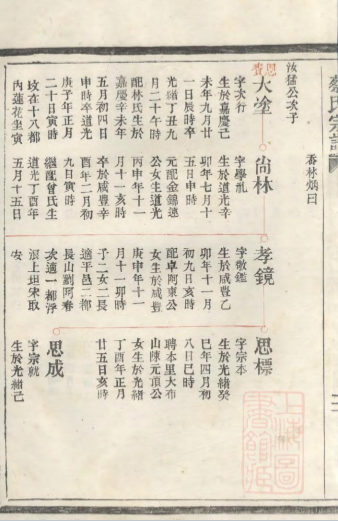 汝猛公次子
香林炳曰
恩賞
大塗
字次行
生於嘉慶己
未年九月廿
一日辰時卒
光緒丁丑九
月二十午時
配林氏生於
嘉慶辛未年
五月初四日
申時卒道光
庚子年正月
二十日寅時
坟在十八都
內蓮花坐寅
尚林
字學禮
生於道光辛
卯年七月十
五日申時
元配金錦遠
公女生道光
丙申年十一
月十一亥時
卒於咸豊辛
酉年二月初
九日寅時
繼配曾氏生
道光丁酉年
五月十五日
孝鏡
字敬鑑
生於咸豊乙
卯年十一月
初九日亥時
配卓阿東公
女生於咸豊
庚申年十一
月十一卯時
子二女二長
適平邑二都
長山劉阿春
次適一都浮
滨上垣宋取
安
思標
字宗本
生於光緒癸
巳年四月初
八日巳時
聘本里大布
山陳元頂公
女生於光緒
丁酉年正月
廿五日亥時
思成
字宗就
生於光緒己
上海圖書館藏